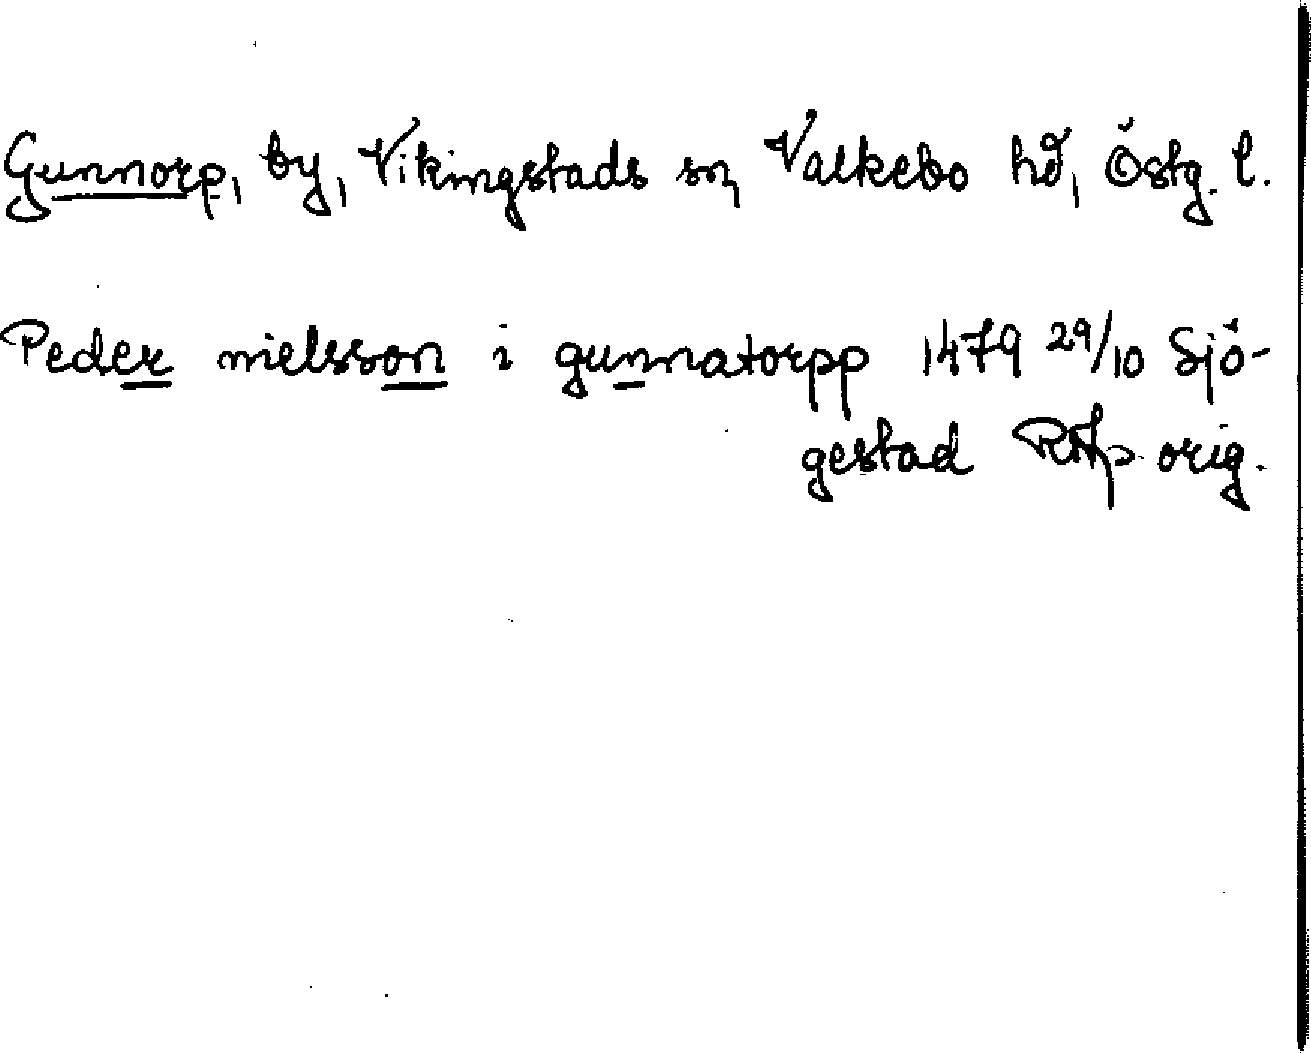 Gunnorp, by, Vikingstads sn, Valkebo hd, Östg. l.
Peder nielsson i gunnatorpp 1479 29/10 Sjö-
gestad RAp orig.